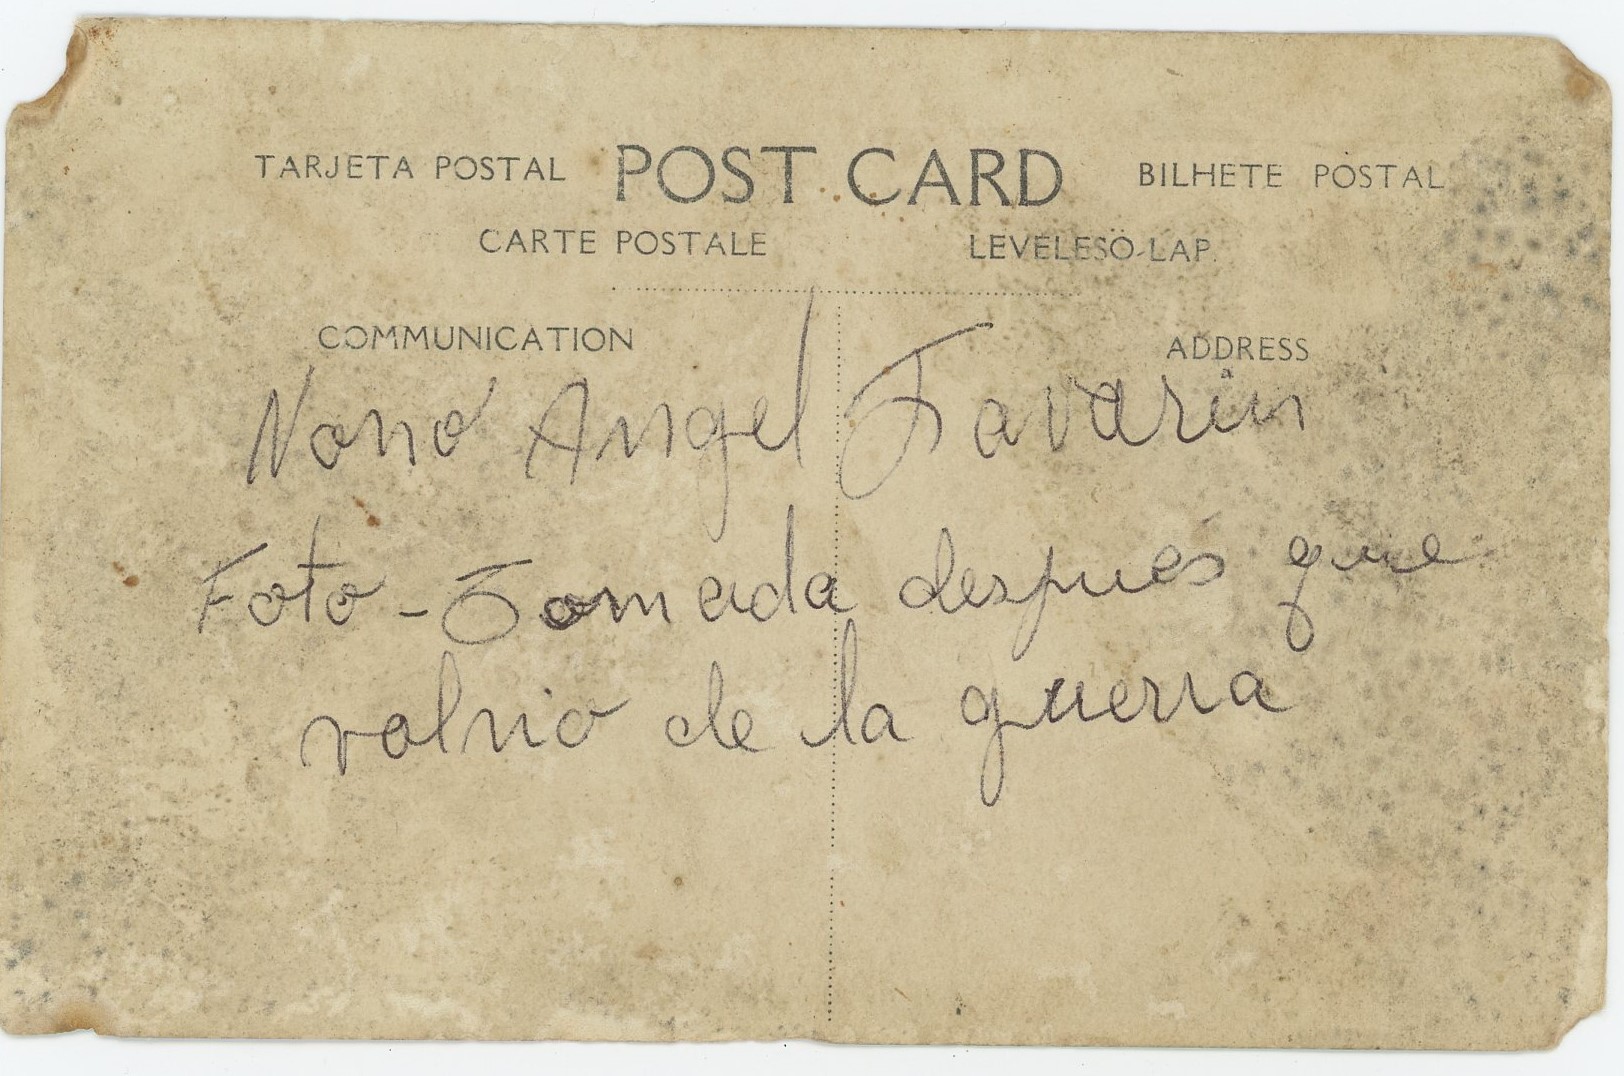 TARJETA POSTAL POST CARD BILHETE POSTAL
CARTE POSTALE LEVELESÖ-LAP.
COMMUNICATION ADDRESS
Nonó Angel Favarin
Foto - Tomada después que
volvio de la guerra